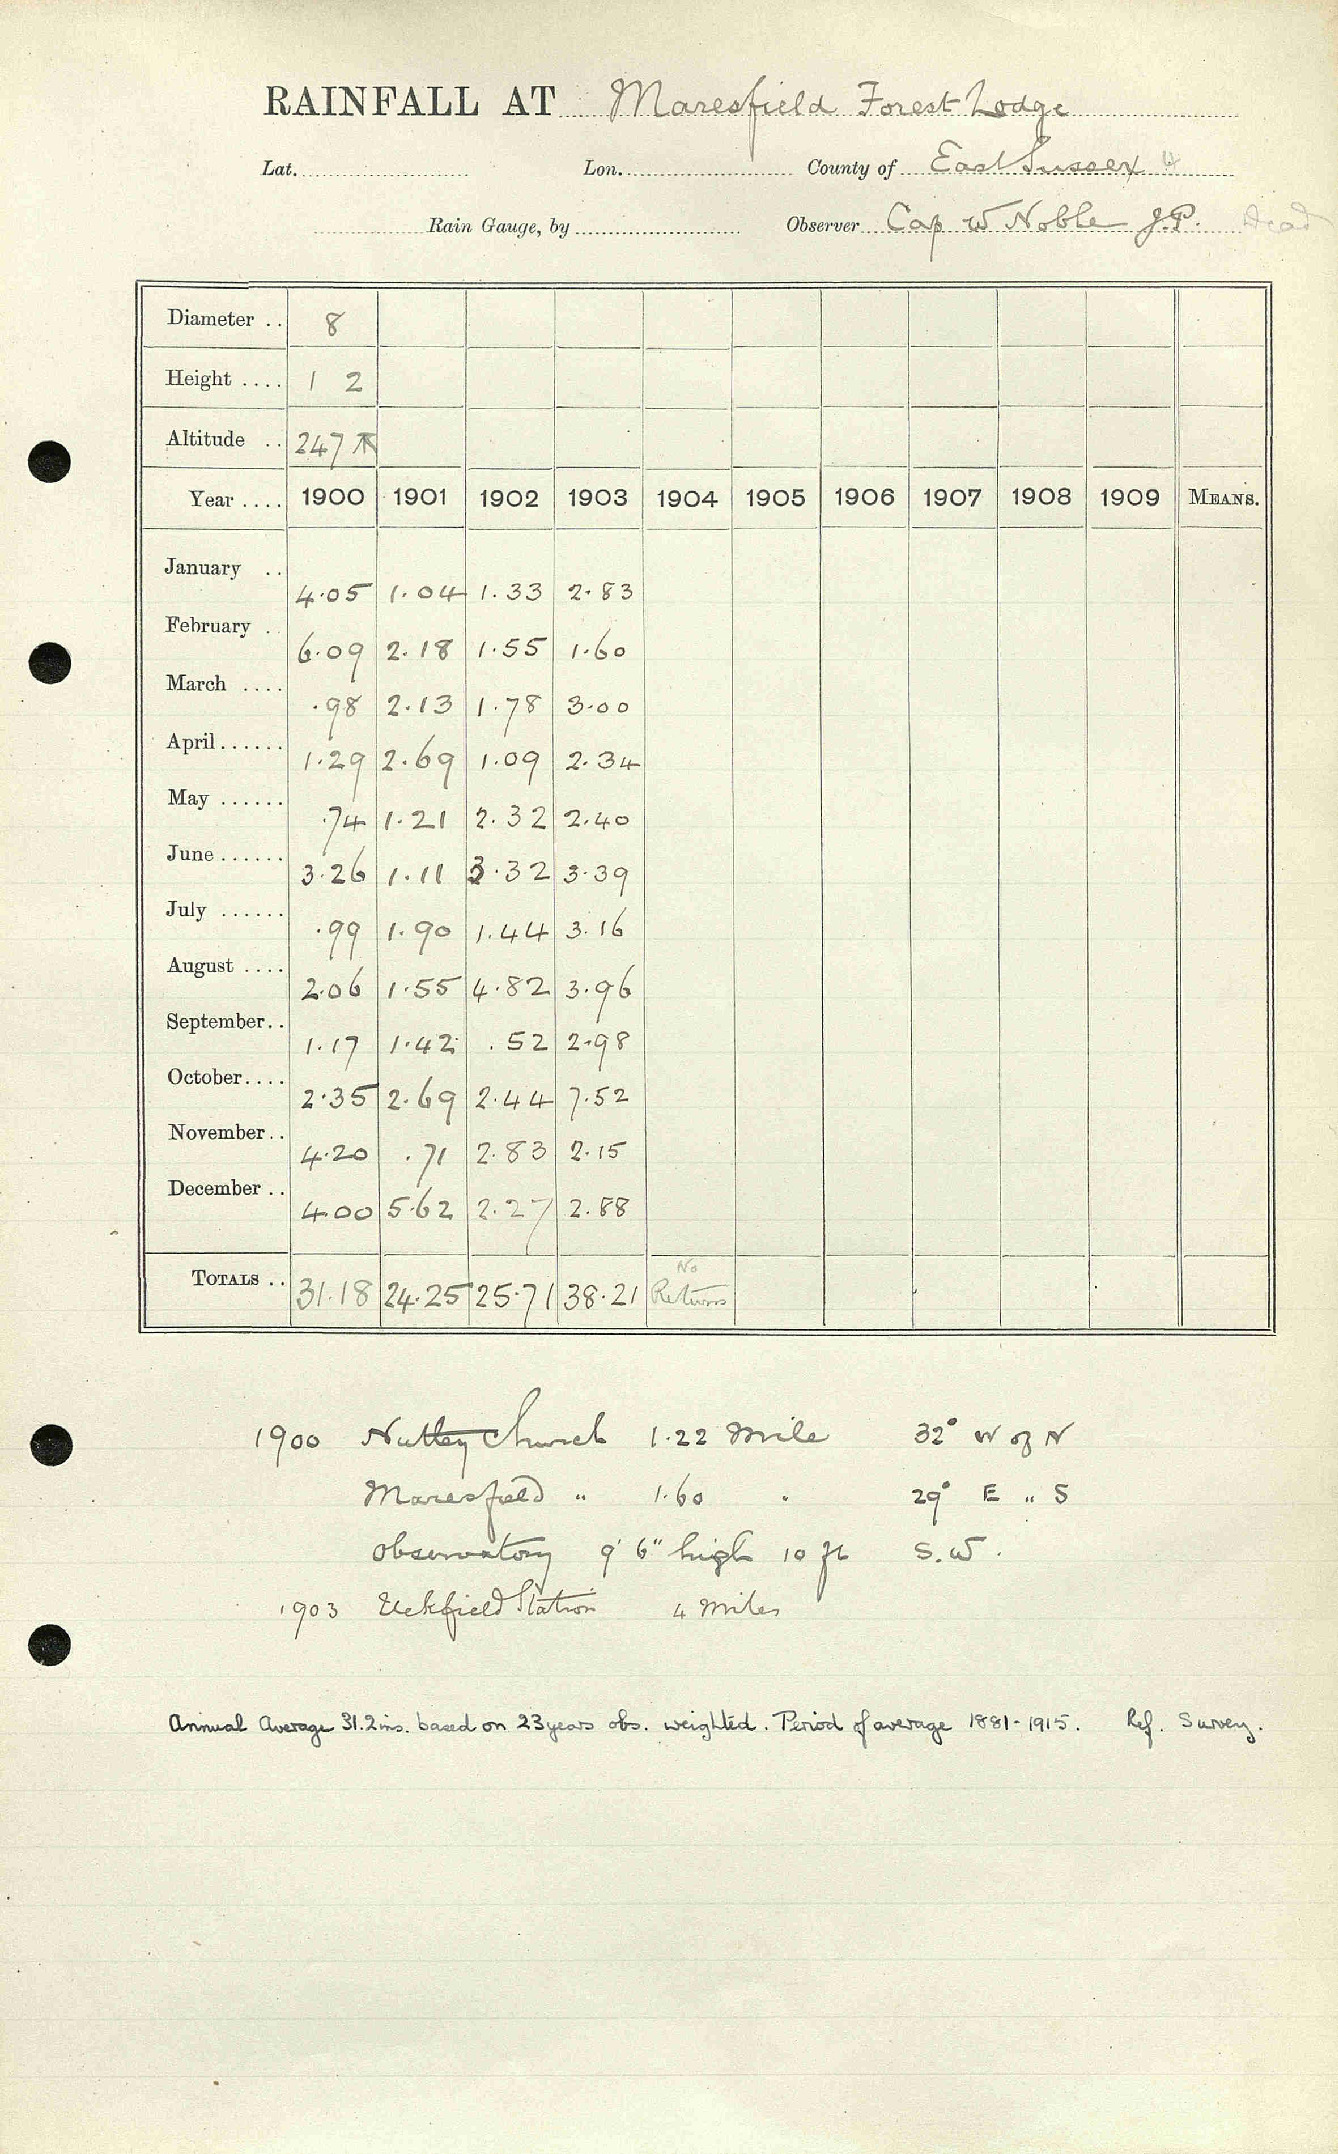 RAINFALL AT Maresfield Forest Lodge
Lat. Lon. County of East Sussex 4
Rain Gauge, by Observer Cap W Noble J.P. Dead
Diameter .. 8
Height .... 1 2
Altitude .. 247
Year .... 1900 1901 1902 1903 1904 1905 1906 1907 1908 1909 MEANS.
January .. 4.05 1.04 1.33 2.83
February . 6.09 2.18 1.55 1.60
March .... .98 2.13 1.78 3.00
April...... 1.29 2.69 1.09 2.34
May ...... .74 1.21 2.32 2.40
June...... 3.26 1.11 3.32 3.39
July ...... .99 1.90 1.44 3.16
August .... 2.06 1.55 4.82 3.96
September.. 1.17 1.42 .52 2.98
October.... 2.35 2.69 2.44 7.52
November.. 4.20 .71 2.83 2.15
December .. 4.00 5.62 2.27 2.88
TOTALS .. 31.18 24.25 25.71 38.21 No Return
1900 Nutley Church 1.22 Mile 32° W of N
Maresfield " 1.60 " 29° E " S
Observatory 9' 6" high 10 ft S.W.
1903 Uckfield Station 4 miles
Annual Average 31.2 ins. based on 23 years obs. weighted. Period of average 1881-1915. Ref. Survey.